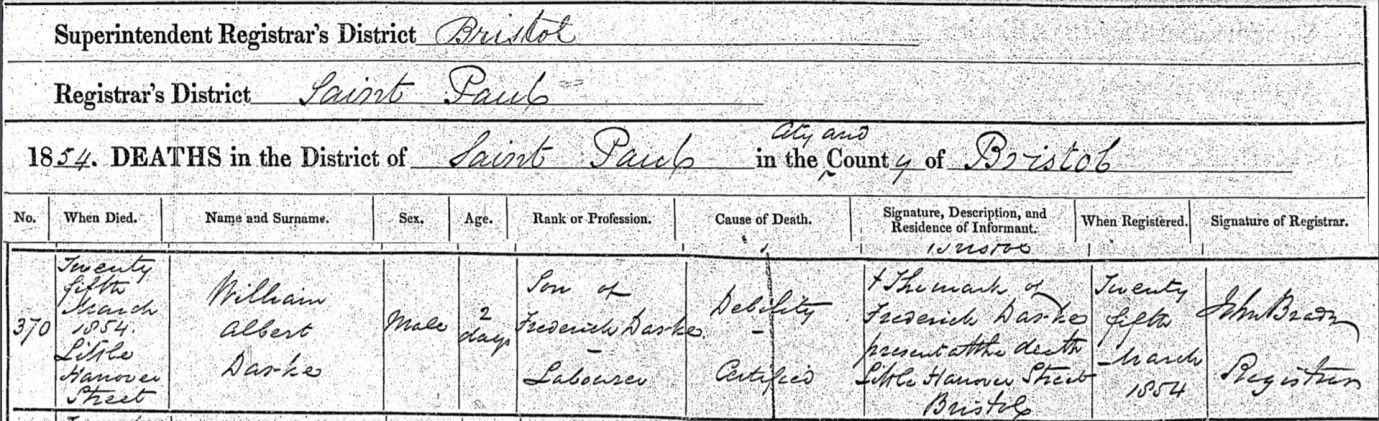 Superintendent Registrar's District Bristol
Registrar's District Saint Paul
1854. DEATHS in the District of Saint Paul in the City and County of Bristol
No. When Died. Name and Surname. Sex. Age. Rank or Profession. Cause of Death. Signature, Description, and Residence of Informant. When Registered. Signature of Registrar.
Bristol
370
Twenty
fifth
March
1854.
Little
Hanover
Street
William
Albert
Darke
Male
2
days
Son of
Frederick Darke
Labourer
Debility
Certified
+ The mark of
Frederick Darke
present at the death
Little Hanover Street
Bristol
Twenty
fifth
March
1854
John
Registrar